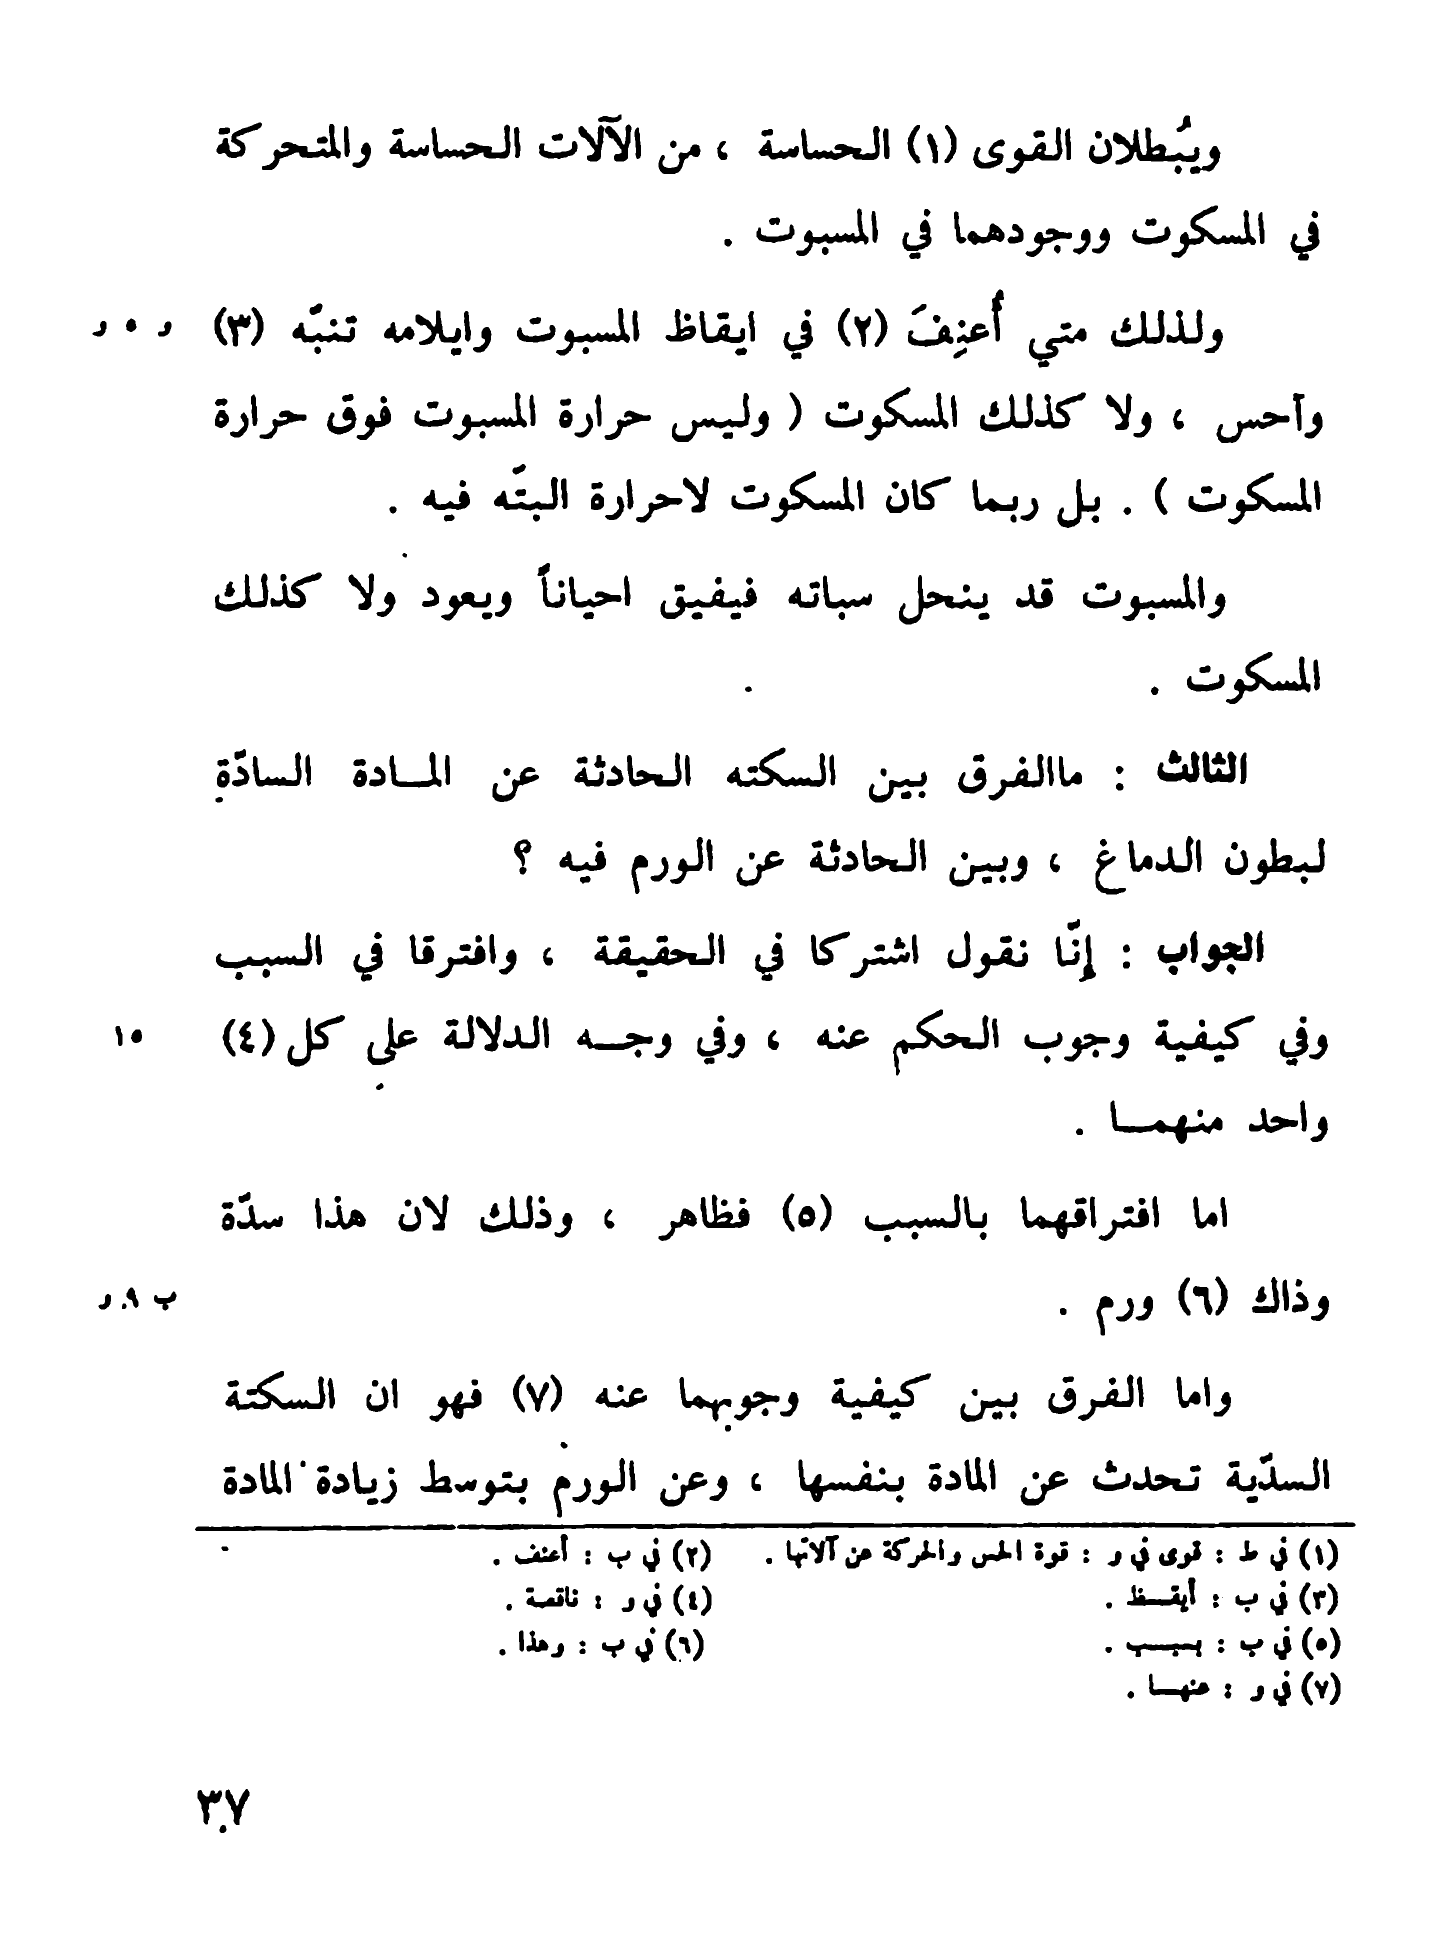 ويُبطلان القوى (١) الحساسة ، من الآلات الحساسة والمتحركة
في المسكوت ووجودهما في المسبوت .
ولذلك متي أُعنِفَ (٢) في ايقاظ المسبوت وايلامه تنبّه (٣) و ٥ و
وآحس ، ولا كذلك المسكوت ( وليس حرارة المسبوت فوق حرارة
المسكوت ) . بل ربما كان المسكوت لاحرارة البتّه فيه .
والمسبوت قد ينحل سباته فيفيق احياناً ويعود ولا كذلك
المسكوت .
الثالث : ماالفرق بين السكته الحادثة عن المــادة السادّة
لبطون الدماغ ، وبين الحادثة عن الورم فيه ؟
الجواب : إنّا نقول اشتركا في الحقيقة ، وافترقا في السبب
وفي كيفية وجوب الحكم عنه ، وفي وجــه الدلالة علي كل (٤) ١٥
واحد منهمــا .
اما افتراقهما بالسبب (٥) فظاهر ، وذلك لان هذا سدّة
وذاك (٦) ورم . ب ٩ و
واما الفرق بين كيفية وجوبهما عنه (٧) فهو ان السكتة
السدّية تحدث عن المادة بنفسها ، وعن الورم بتوسط زيادة المادة
(١) في ط : قوى في و : قوة الحس والحركة عن آلاتها . (٢) في ب : أعنف .
(٣) في ب : أيقــظ . (٤) في و : ناقصة .
(٥) في ب : بسبب . (٦) في ب : وهذا .
(٧) في و : عنهــا .
٣٧